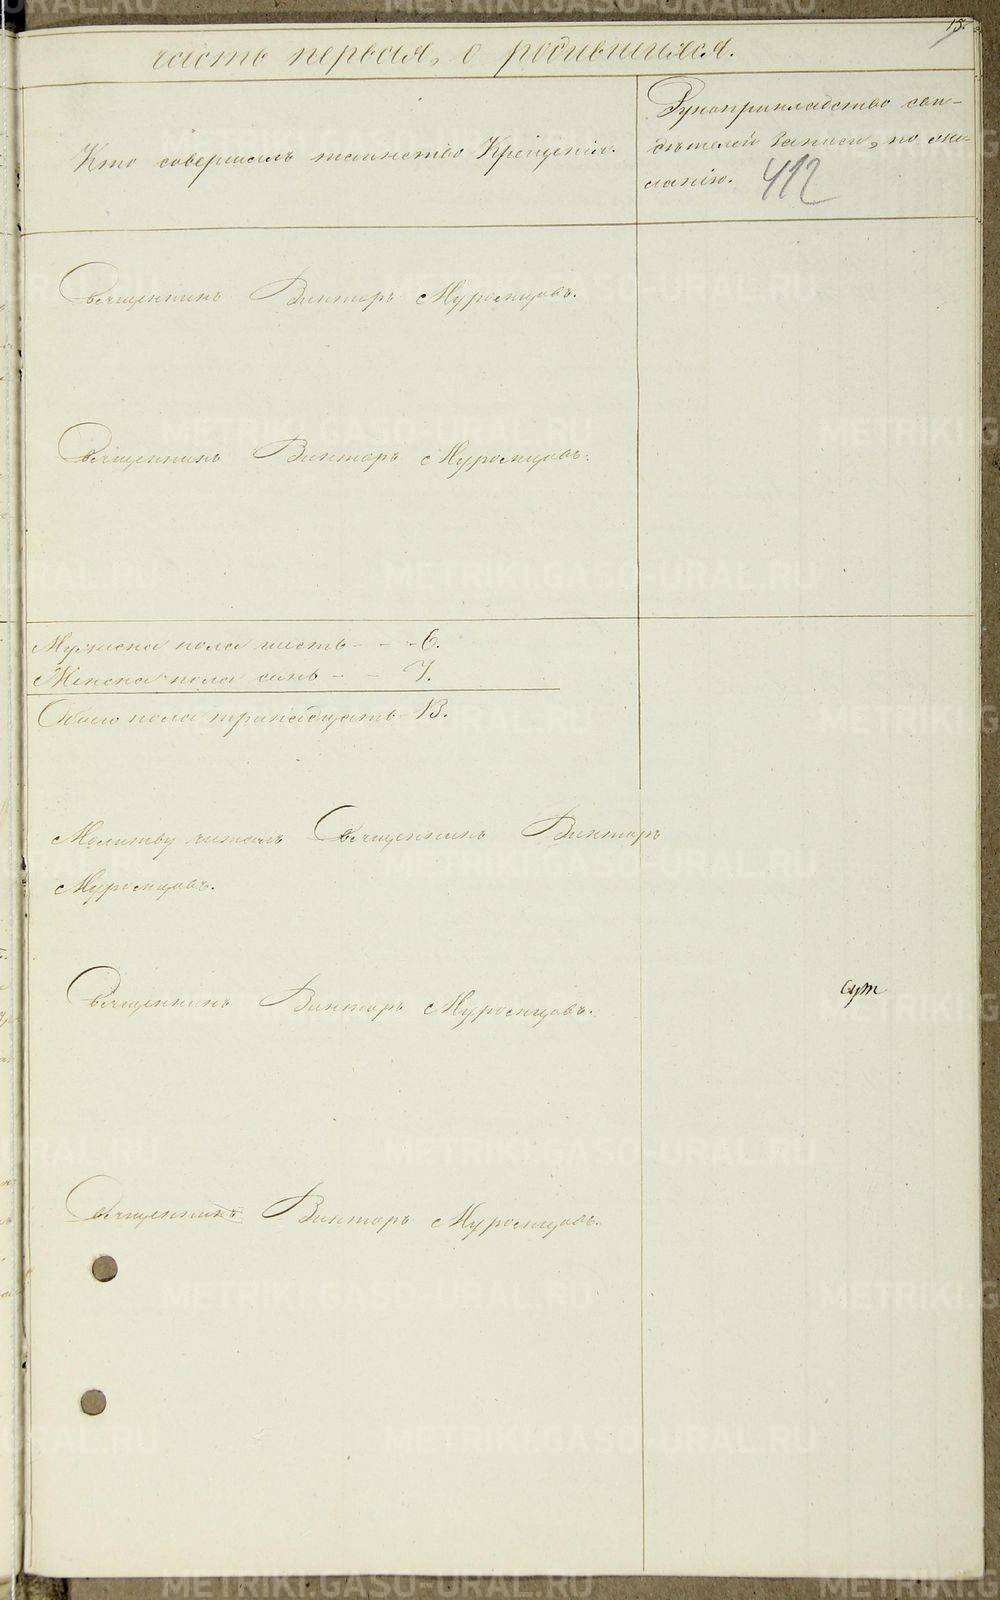 15.
часть первая, о родившихся.
Кто совершалъ таинство Крещенія.
Рукоприкладство сви-
дѣтелей записи, по же-
ланію.
412
Священникъ Викторъ Муромцовъ.
Священникъ Викторъ Муромцовъ.
Мужеска пола шесть - - - 6.
Женска пола семь - - 7.
Обоего пола тринадцать 13.
Молитву читалъ Священникъ Викторъ
Муромцовъ.
Священникъ Викторъ Муромцовъ.
Священникъ Викторъ Муромцовъ.
METRIKI.GASO-URAL.RU